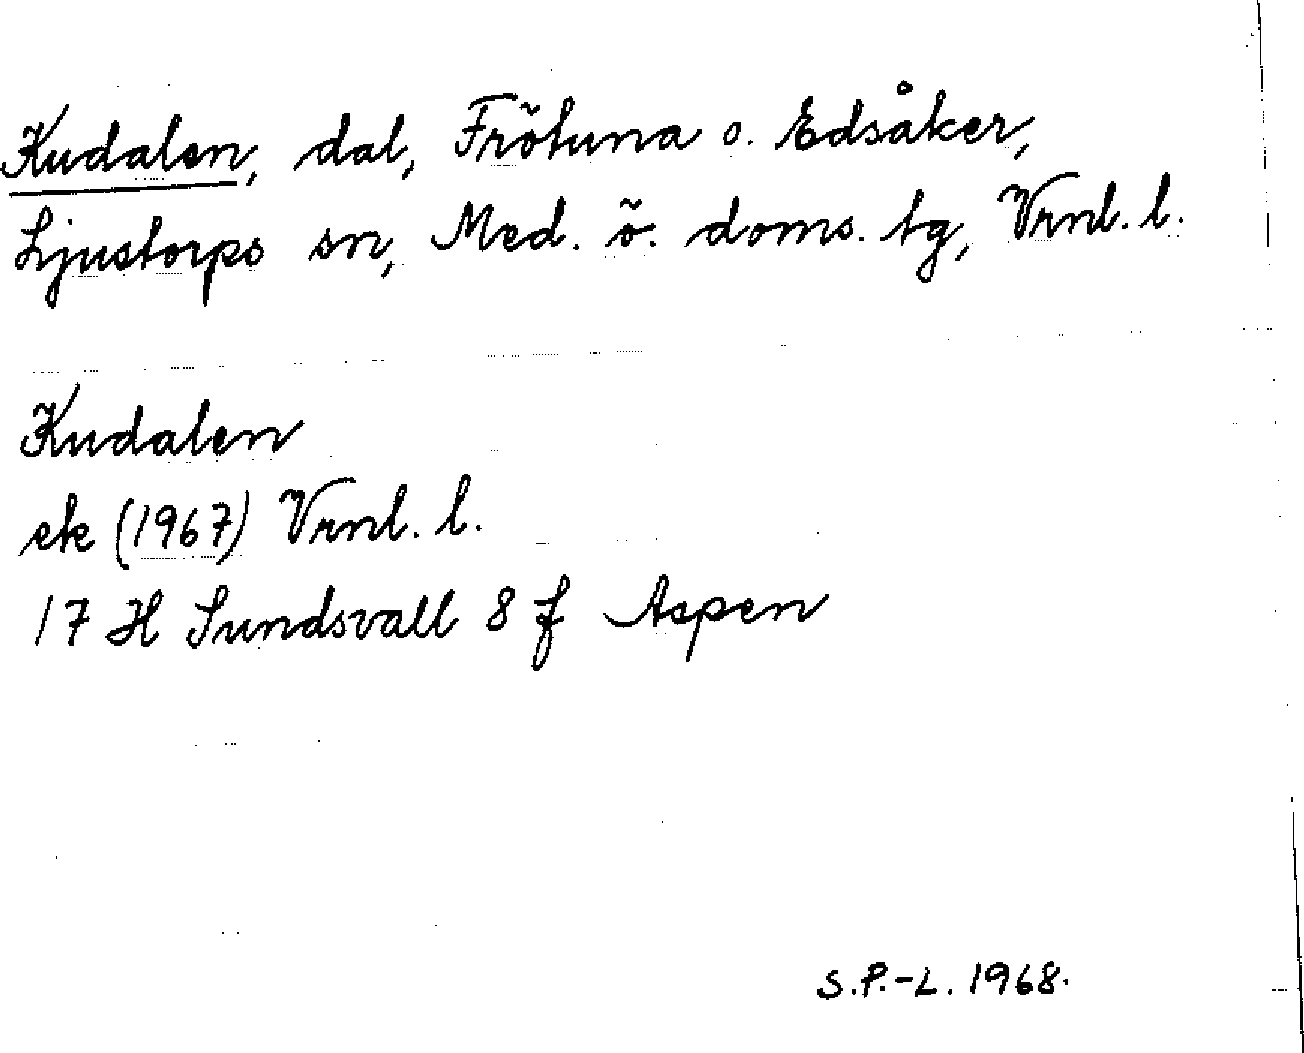 Kudalen, dal, Frötuna o. Edsåker,
Ljustorps sn, Med. ö. doms. tg, Vrnl. l.
Kudalen
ek (1967) Vrnl. l.
17 H Sundsvall 8 f Aspen
S.P.-L. 1968.